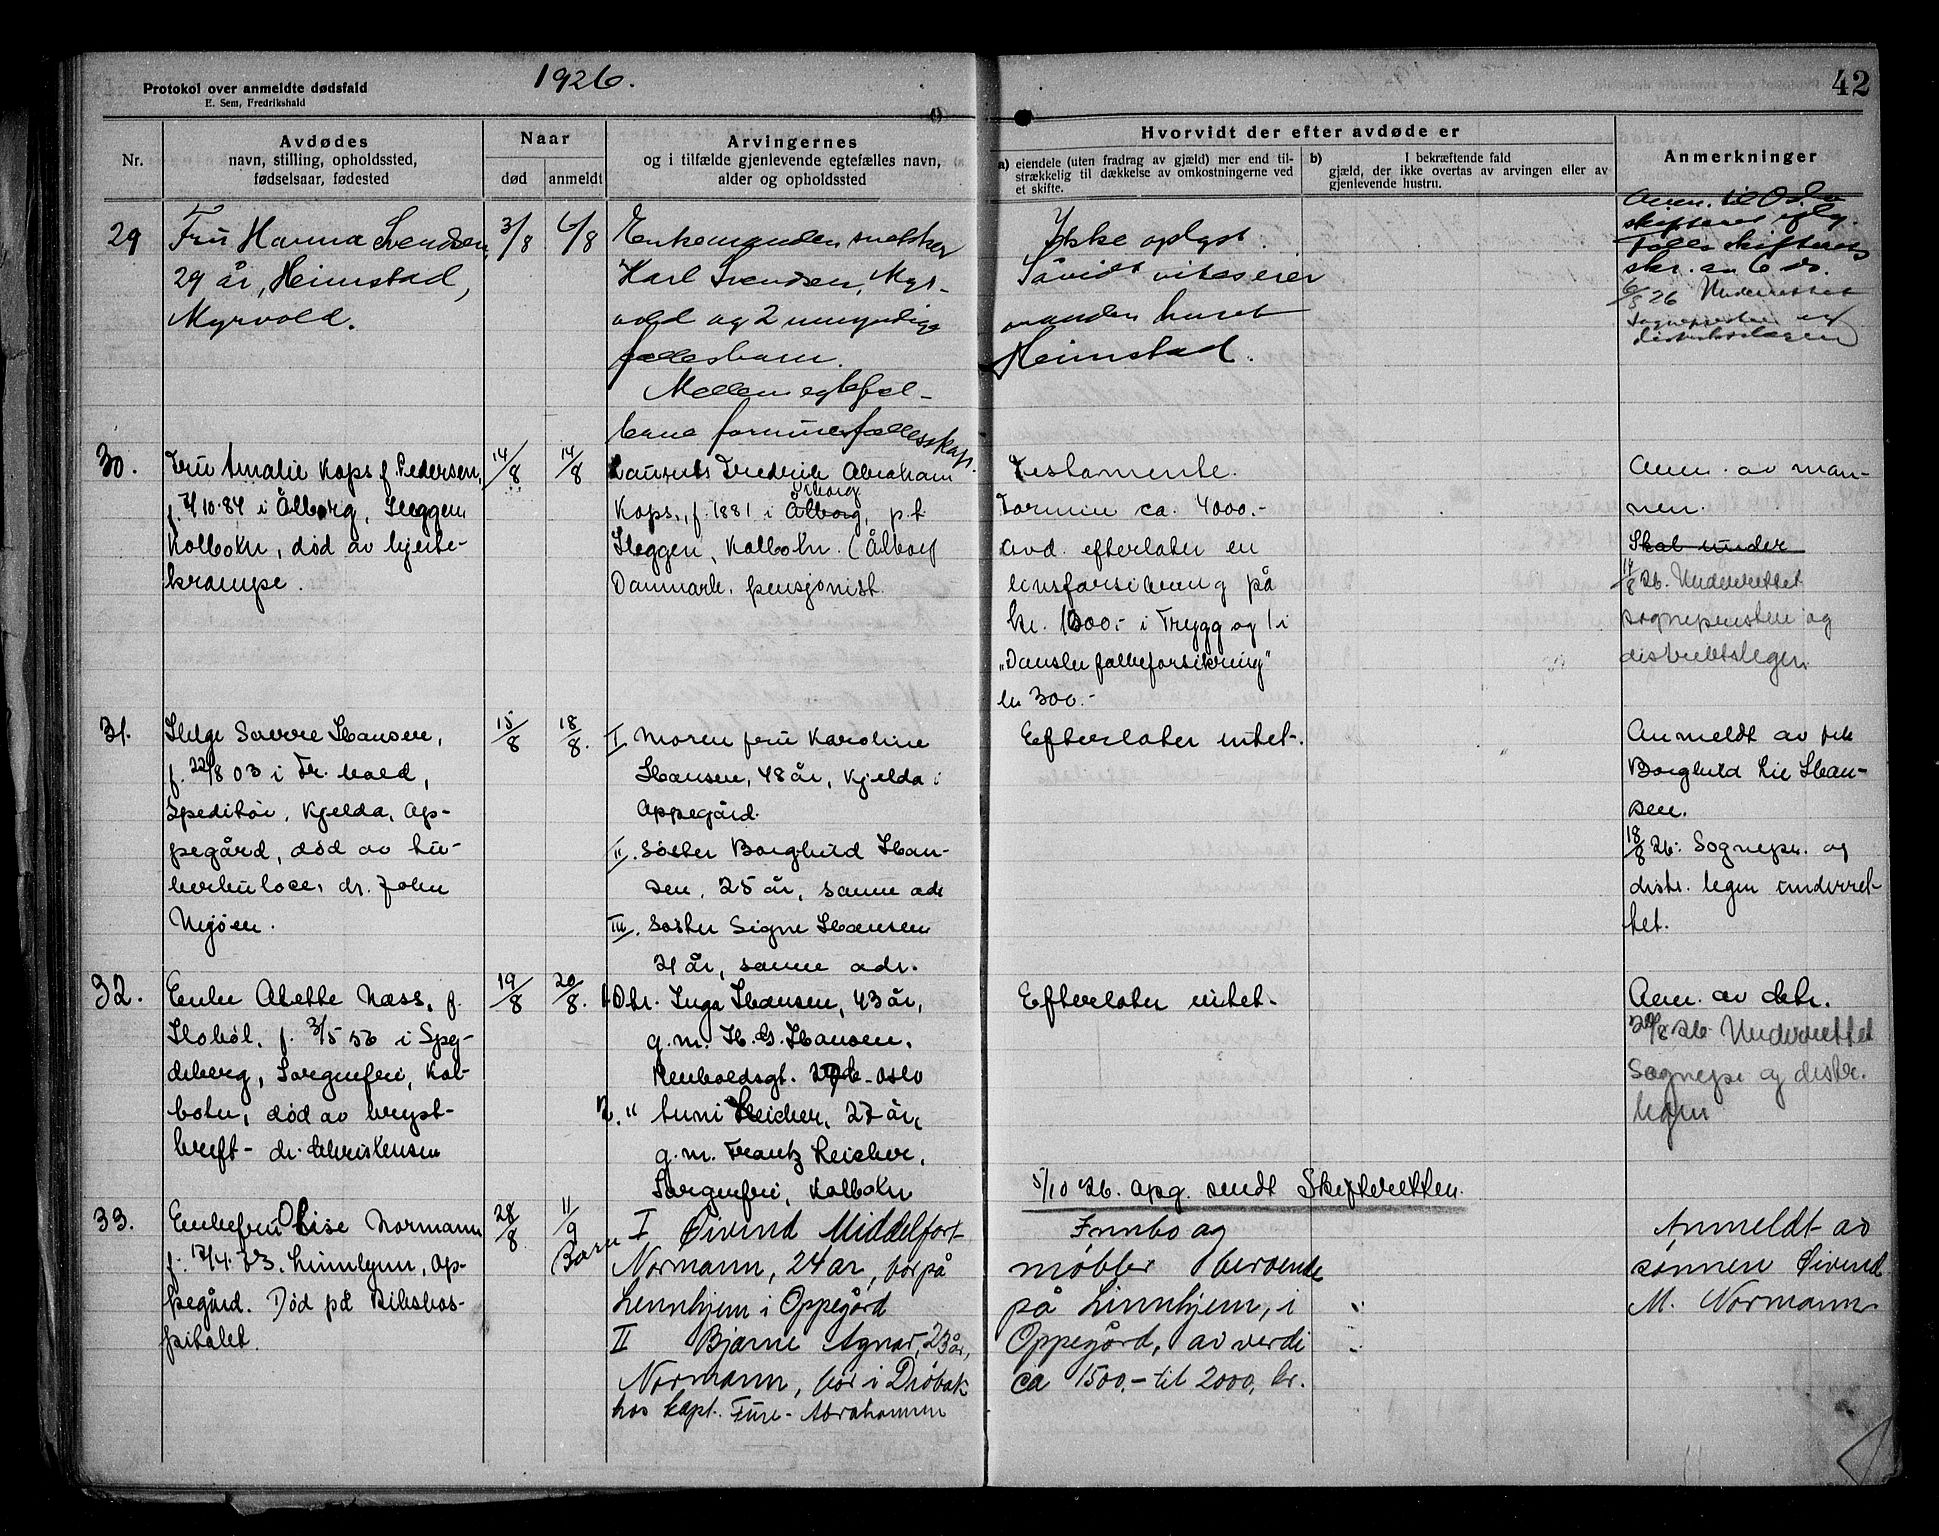 Protokol over anmeldte dødsfald
E. Sem, Fredrikshald
1926.
42
Nr.
Avdødes
navn, stilling, opholdssted,
fødselsaar, fødested
Naar
død
anmeldt
Arvingernes
og i tilfælde gjenlevende egtefælles navn,
alder og opholdssted
Hvorvidt der efter avdøde er
a) eiendele (uten fradrag av gjæld) mer end til-
strækkelig til dækkelse av omkostningerne ved
et skifte.
b) I bekræftende fald
gjæld, der ikke overtas av arvingen eller av
gjenlevende hustru.
Anmerkninger
29
Fru Hanna Svendsen,
29 år, Heimstad,
Myrvold.
3/8
6/8
Enkemanden snekker
Karl Svendsen, Myr-
vold og 2 umyndige
fællesbarn.
Mellem egtefæl-
lerne formuesfællesskap.
Ikke oplyst.
Såvidt vites eier
manden huset
Heimstad.
Anm. til Oslo
skifteret iflg.
Follo skifterets
skr. av 6 ds.
6/8 26 Underrettet
Sognepresten og
distriktslægen
30.
Fru Amalie Kops f. Pedersen,
f. 4/10.84 i Ålborg, Heggen
Kolbotn, død av hjerte-
krampe.
14/8
14/8
Laurits Fredrik Abraham
Viborg
Kops, f. 1881 i Ålborg, p.t.
Heggen, Kolbotn. (Ålborg
Danmark, pensjonist.
Testamente.
Formue ca. 4000.-
Avd. efterlater en
livsforsikring på
kr. 1000.- i Trygg og 1 i
"Danske folkeforsikring"
kr 300.-
Anm. av man-
nen.
Skal under
14/8 26. Underrettet
sognepresten og
distriktslegen
31.
Helge Sverre Hansen,
f. 22/8 03 i Fr.hald,
Speditør, Kjelda, Op-
pegård, død av tu-
berkulose, dr. John
Nygjøen.
15/8
18/8.
I. Moren fru Karoline
Hansen, 48 år, Kjelda i
Oppegård.
II. Søster Borghild Han-
sen, 25 år, samme adr
III. Søster Signe Hansen
21 år, samme adr.
Efterlater intet.
Anmeldt av frk
Borghild Lie Han-
sen.
18/8 26. Sognepr. og
distr. legen underret-
tet.
32.
Enke Anette Næss, f.
Hobøl, f. 3/5 56 i Spy-
deberg, Sorgenfri, Kol-
botn, død av bryst-
kreft - dr. Christensen
19/8
20/8.
1. Dtr. Inga Hansen, 43 år,
g.m. H. G. Hansen,
Oslo
2. " 27 år,
g.m. Frantz Reicher,
Sorgenfri, Kolbotn
Efterlater intet.
Anm. av dtr.
20/8 26 Underrettet
Sognepr og distr.
legen
5/10 26. opg. sendt Skifteretten.
33.
Enkefru Olise Normann
f. 17/4.73. Linnhjem, Op-
pegård. Død på Rikshos-
pitalet.
28/8
11/9
Barn
I Øivind Middelfort
Normann, 24 år, bor på
Linnhjem i Oppegård
II Bjarne Agnar, 23 år,
Normann, bor i Drøbak
hos kapt. Fure-Abrahamsen
Innbo og
møbler beroende
på Linnhjem, i
Oppegård, av verdi
ca 1500,- til 2000, kr.
Anmeldt av
sønnen Øivind
M. Normann